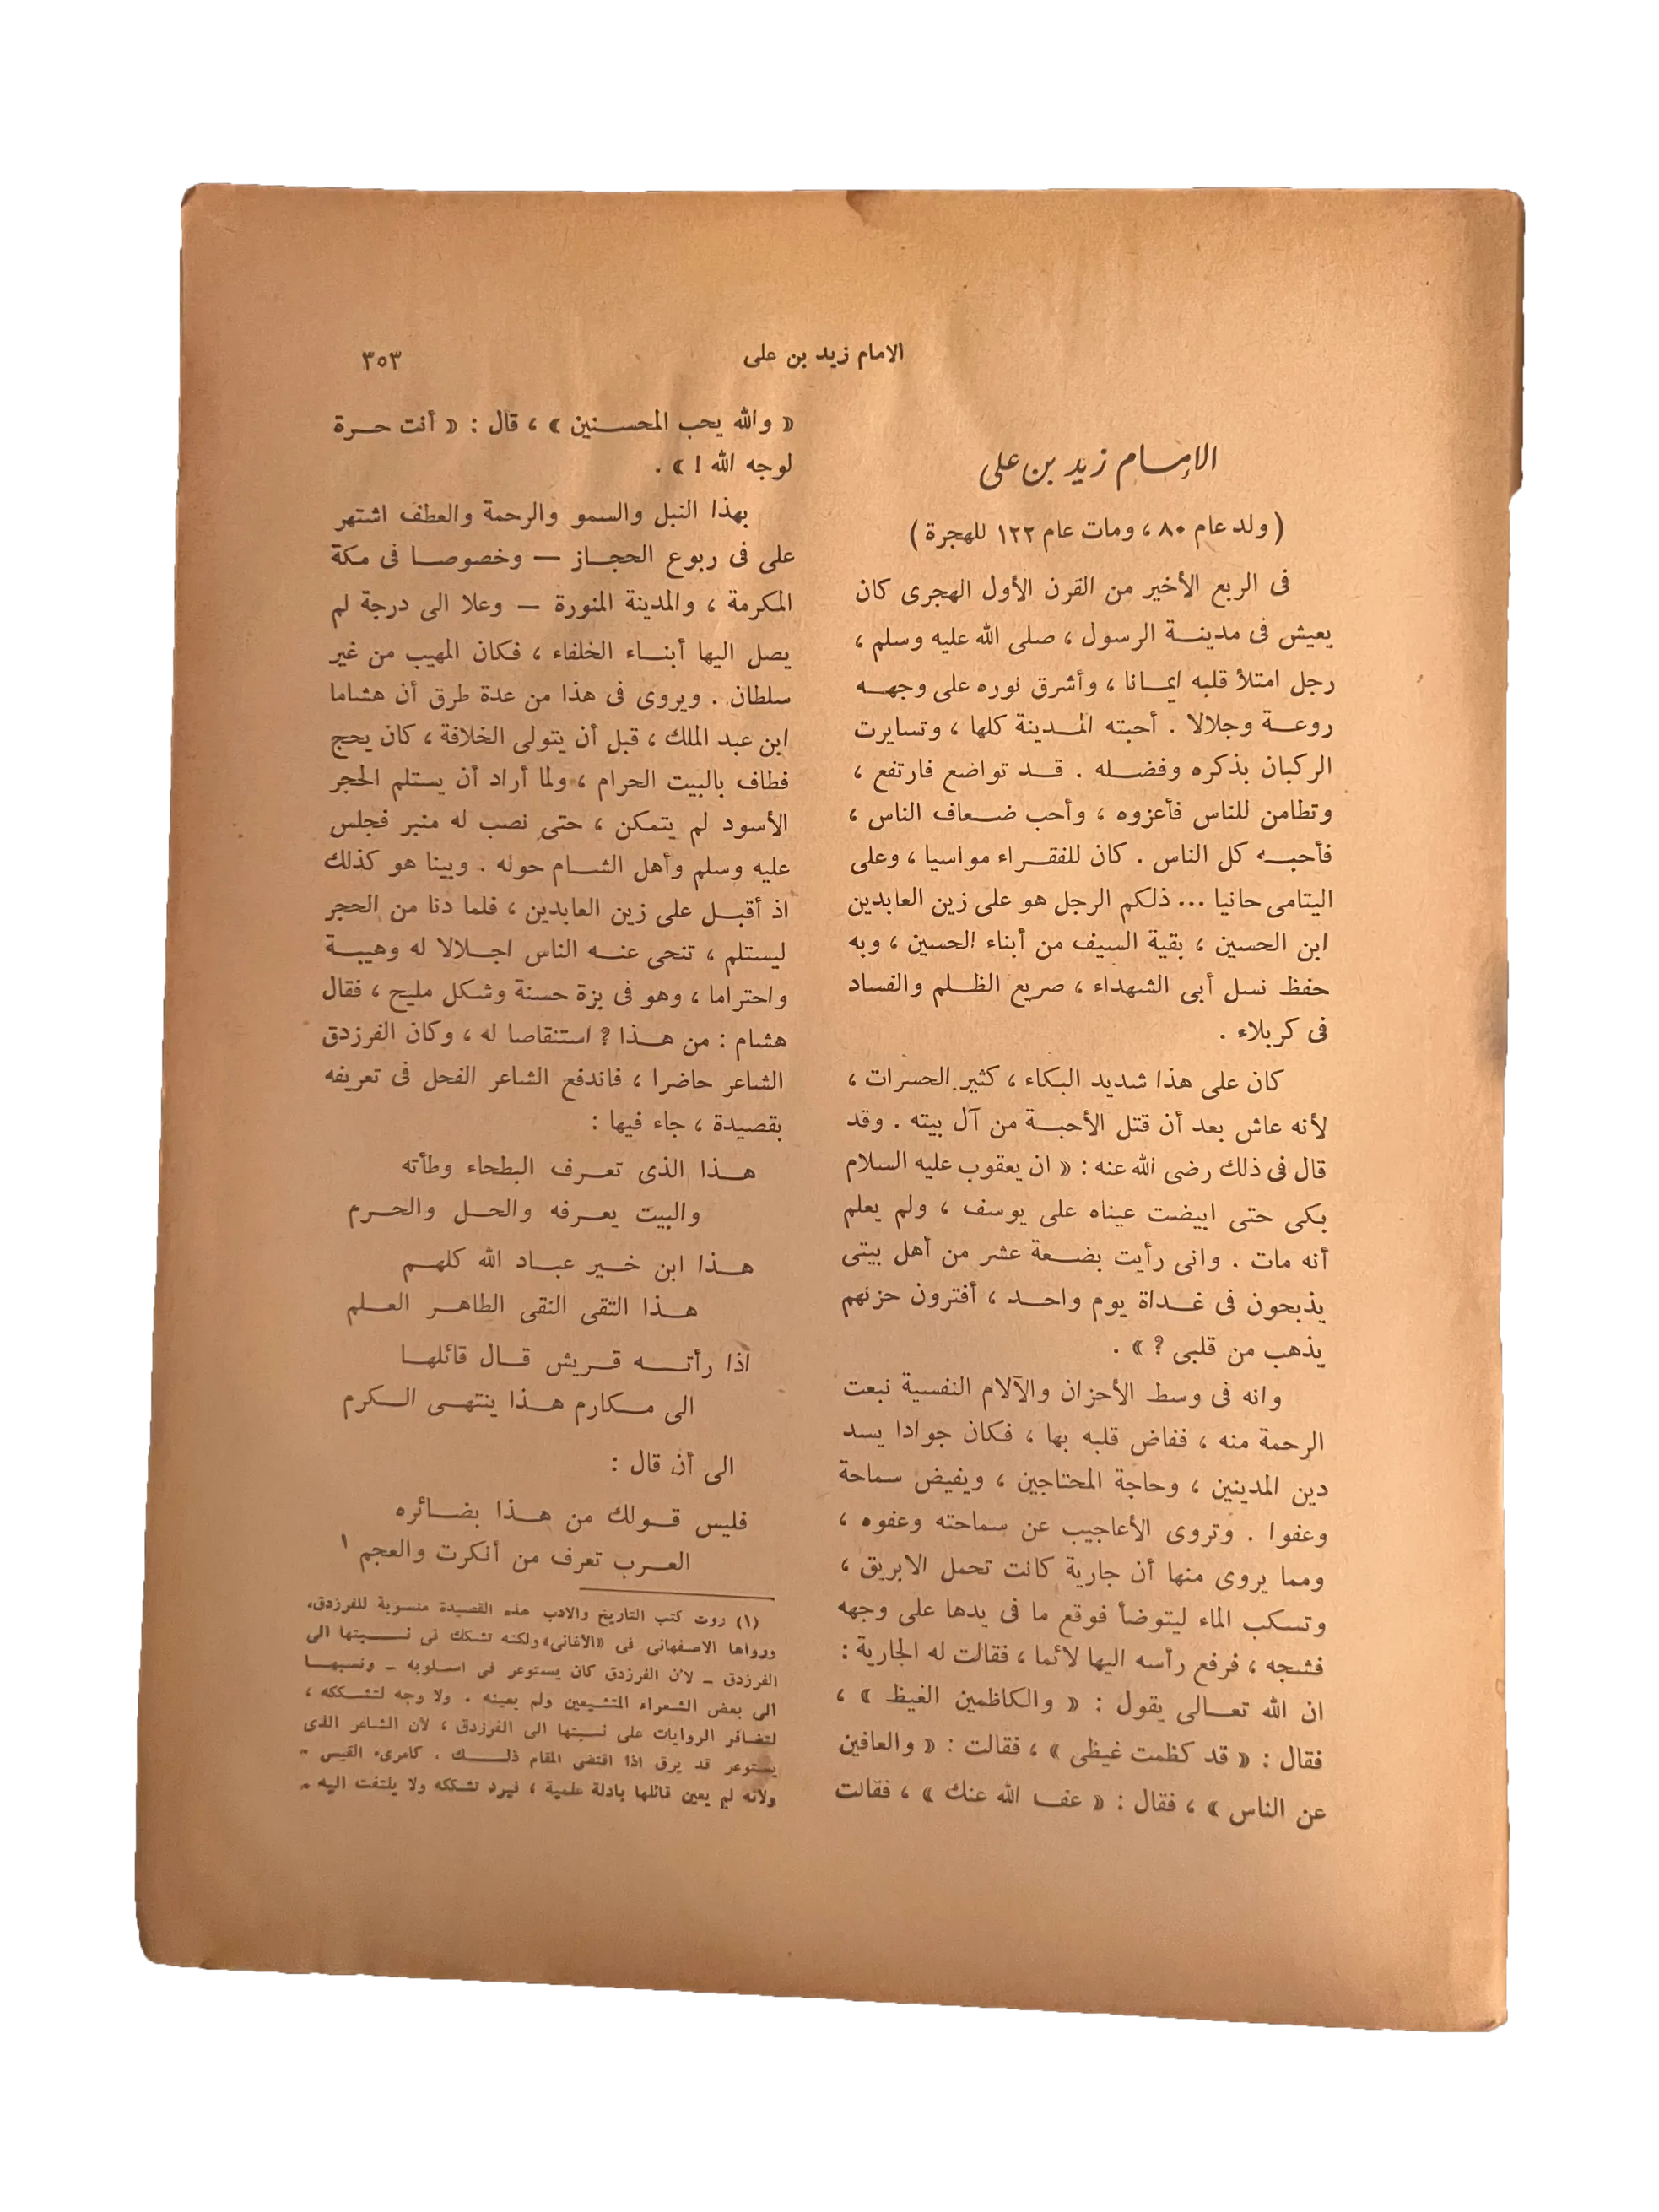 الامام زيد بن على
٣٥٣
الإمام زيد بن على
( ولد عام ٨٠ ، ومات عام ١٢٢ للهجرة )
فى الربع الأخير من القرن الأول الهجرى كان
يعيش فى مدينة الرسول ، صلى الله عليه وسلم ،
رجل امتلأ قلبه ايمانا ، وأشرق نوره على وجهه
روعة وجلالا . أحبته المدينة كلها ، وتسايرت
الركبان بذكره وفضله . قد تواضع فارتفع ،
وتطامن للناس فأعزوه ، وأحب ضعاف الناس ،
فأحبه كل الناس . كان للفقراء مواسيا ، وعلى
اليتامى حانيا ... ذلكم الرجل هو على زين العابدين
ابن الحسين ، بقية السيف من أبناء الحسين ، وبه
حفظ نسل أبى الشهداء ، صريع الظلم والفساد
فى كربلاء .
كان على هذا شديد البكاء ، كثير الحسرات ،
لأنه عاش بعد أن قتل الأحبة من آل بيته . وقد
قال فى ذلك رضى الله عنه : « ان يعقوب عليه السلام
بكى حتى ابيضت عيناه على يوسف ، ولم يعلم
أنه مات . وانى رأيت بضعة عشر من أهل بيتى
يذبحون فى غداة يوم واحد ، أفترون حزنهم
يذهب من قلبى ? » .
وانه فى وسط الأحزان والآلام النفسية نبعت
الرحمة منه ، ففاض قلبه بها ، فكان جوادا يسد
دين المدينين ، وحاجة المحتاجين ، ويفيض سماحة
وعفوا . وتروى الأعاجيب عن سماحته وعفوه ،
ومما يروى منها أن جارية كانت تحمل الابريق ،
وتسكب الماء ليتوضأ فوقع ما فى يدها على وجهه
فشجه ، فرفع رأسه اليها لائما ، فقالت له الجارية :
ان الله تعالى يقول : « والكاظمين الغيظ » ،
فقال : « قد كظمت غيظى » ، فقالت : « والعافين
عن الناس » ، فقال : « عفا الله عنك » ، فقالت
« والله يحب المحسنين » ، قال : « أنت حرة
لوجه الله ! » .
بهذا النبل والسمو والرحمة والعطف اشتهر
على فى ربوع الحجاز — وخصوصا فى مكة
المكرمة ، والمدينة المنورة — وعلا الى درجة لم
يصل اليها أبناء الخلفاء ، فكان المهيب من غير
سلطان . ويروى فى هذا من عدة طرق أن هشاما
ابن عبد الملك ، قبل أن يتولى الخلافة ، كان يحج
فطاف بالبيت الحرام ، ولما أراد أن يستلم الحجر
الأسود لم يتمكن ، حتى نصب له منبر فجلس
عليه وسلم وأهل الشام حوله . وبينا هو كذلك
اذ أقبل على زين العابدين ، فلما دنا من الحجر
ليستلم ، تنحى عنه الناس اجلالا له وهيبة
واحتراما ، وهو فى بزة حسنة وشكل مليح ، فقال
هشام : من هذا ? استنقاصا له ، وكان الفرزدق
الشاعر حاضرا ، فاندفع الشاعر الفحل فى تعريفه
بقصيدة ، جاء فيها :
هذا الذى تعرف البطحاء وطأته
والبيت يعرفه والحل والحرم
هذا ابن خير عباد الله كلهم
هذا التقى النقى الطاهر العلم
اذا رأته قريش قال قائلها
الى مكارم هذا ينتهى الكرم
الى أن قال :
فليس قولك من هذا بضائره
العرب تعرف من أنكرت والعجم ١
(١) روت كتب التاريخ والادب هذه القصيدة منسوبة للفرزدق،
ورواها الاصفهانى فى «الآغانى» ولكنه تشكك فى نسبتها الى
الفرزدق ــ لأن الفرزدق كان يستوعر فى اسلوبه ــ ونسبها
الى بعض الشعراء المتشيعين ولم يعينه . ولا وجه لتشككه ،
لتضافر الروايات على نسبتها الى الفرزدق ، لأن الشاعر الذى
يستوعر قد يرق اذا اقتضى المقام ذلك . كامرىء القيس ..
ولانه لم يعين قائلها بادلة علمية ، فيرد تشككه ولا يلتفت اليه ..